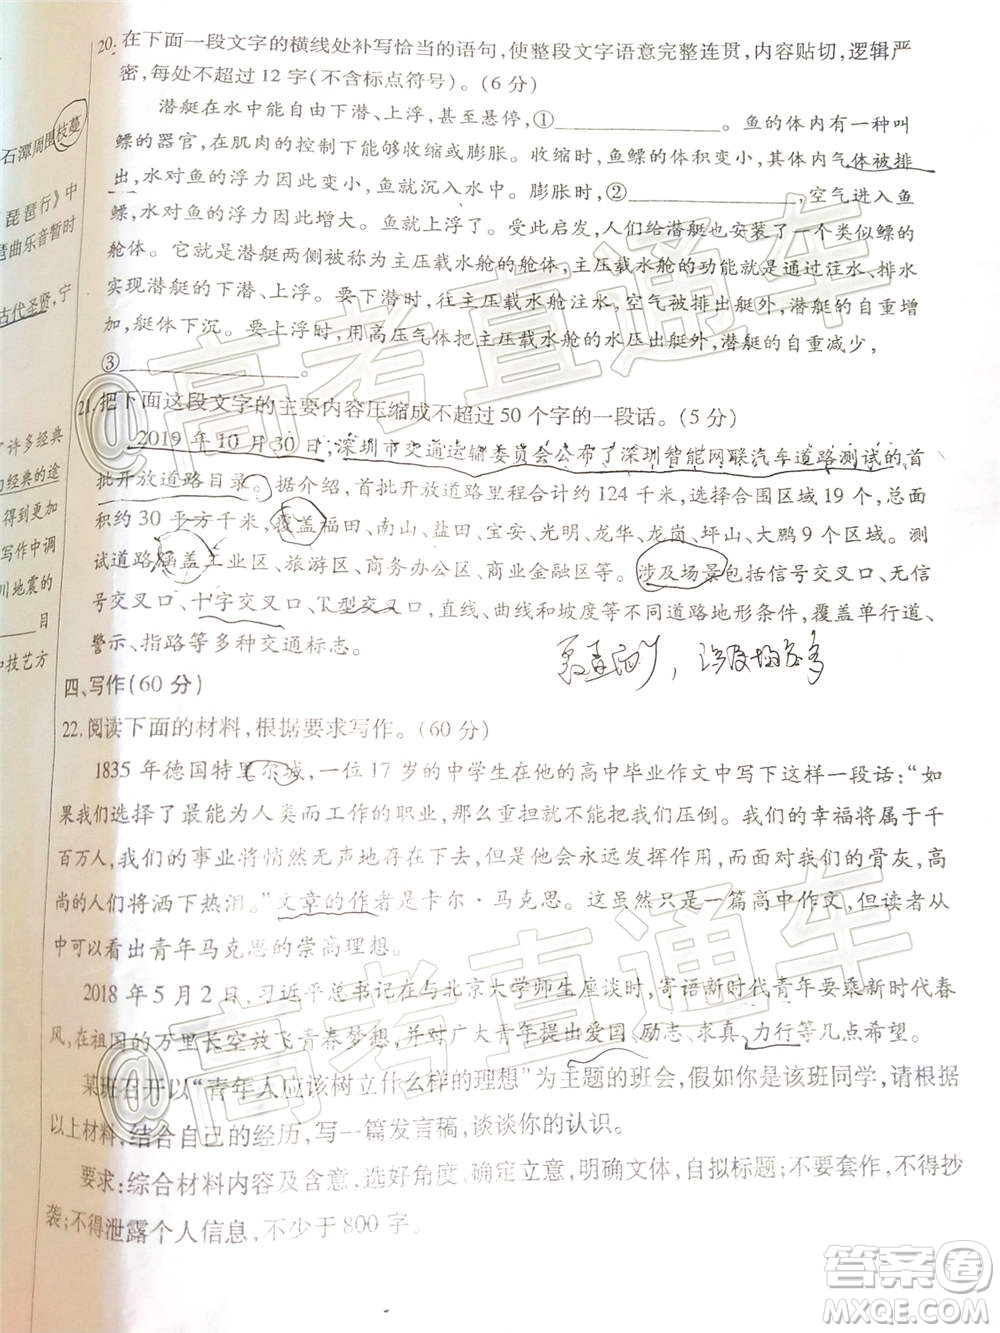 20. 在下面一段文字的横线处补写恰当的语句,使整段文字语意完整连贯,内容贴切,逻辑严
密,每处不超过12字(不含标点符号)。(6分)
潜艇在水中能自由下潜、上浮,甚至悬停,①____________。鱼的体内有一种叫
鳔的器官,在肌肉的控制下能够收缩或膨胀。收缩时,鱼鳔的体积变小,其体内气体被排
出,水对鱼的浮力因此变小,鱼就沉入水中。膨胀时,②____________,空气进入鱼
鳔,水对鱼的浮力增大。鱼就上浮了。受此启发,人们给潜艇也安装了一个类似鳔的
舱体。它就是潜艇两侧被称为主压载水舱的舱体,主压载水舱的功能就是通过注水、排水
实现潜艇的下潜、上浮。要下潜时,往主压载水舱注水,空气被排出艇外,潜艇的自重增
加,艇体下沉。要上浮时,用高压气体把主压载水舱的水压出艇外,潜艇的自重减少,
③____________。
21. 把下面这段文字的主要内容压缩成不超过50个字的一段话。(5分)
2019年10月30日,深圳市交通运输委员会公布了深圳智能网联汽车道路测试的首
批开放道路目录。据介绍,首批开放道路里程合计约124千米,选择合围区域19个,总面
积约30平方千米,覆盖福田、南山、盐田、宝安、光明、龙华、龙岗、坪山、大鹏9个区。测
试道路涵盖工业区、旅游区、商务办公区、商业金融区等。涉及场景包括信号交叉口、无信
号交叉口、十字交叉口、T型交叉口,直线、曲线和坡度等不同道路地形条件,覆盖单行道、
警示、指路等多种交通标志。
四、写作(60分)
22. 阅读下面的材料,根据要求写作。(60分)
1835年德国特里尔城,一位17岁的中学生在他的高中毕业作文中写下这样一段话:“如
果我们选择了最能为人类而工作的职业,那么重担就不能把我们压倒。我们的幸福将属于千
百万人,我们的事业将悄然无声地存在下去,但是它会永远发挥作用,而面对我们的骨灰,高
尚的人们将洒下热泪。”文章的作者是卡尔·马克思。这虽然只是一篇高中作文,但读者从
中可以看出青年马克思的崇高理想。
2018年5月2日,习近平总书记在与北京大学师生座谈时,寄语新时代青年要乘新时代春
风,在祖国的万里长空放飞青春梦想,并对广大青年提出爱国、励志、求真、力行等几点希望。
某班召开以“青年人应该树立什么样的理想”为主题的班会,假如你是该班同学,请根据
以上材料,结合自己的经历,写一篇发言稿,谈谈你的认识。
要求:综合材料内容及含意,选好角度,确定立意,明确文体,自拟标题;不要套作,不得抄
袭;不得泄露个人信息,不少于800字。
石潭周围枝蔓
琵琶行》中
琶曲乐音暂时
古代圣贤,宁
许多经典
的经典的途
得到更加
写作中调
川地震的
目
和技艺方
@高考直通车
@高考直通车
答案卷
MXQE.COM